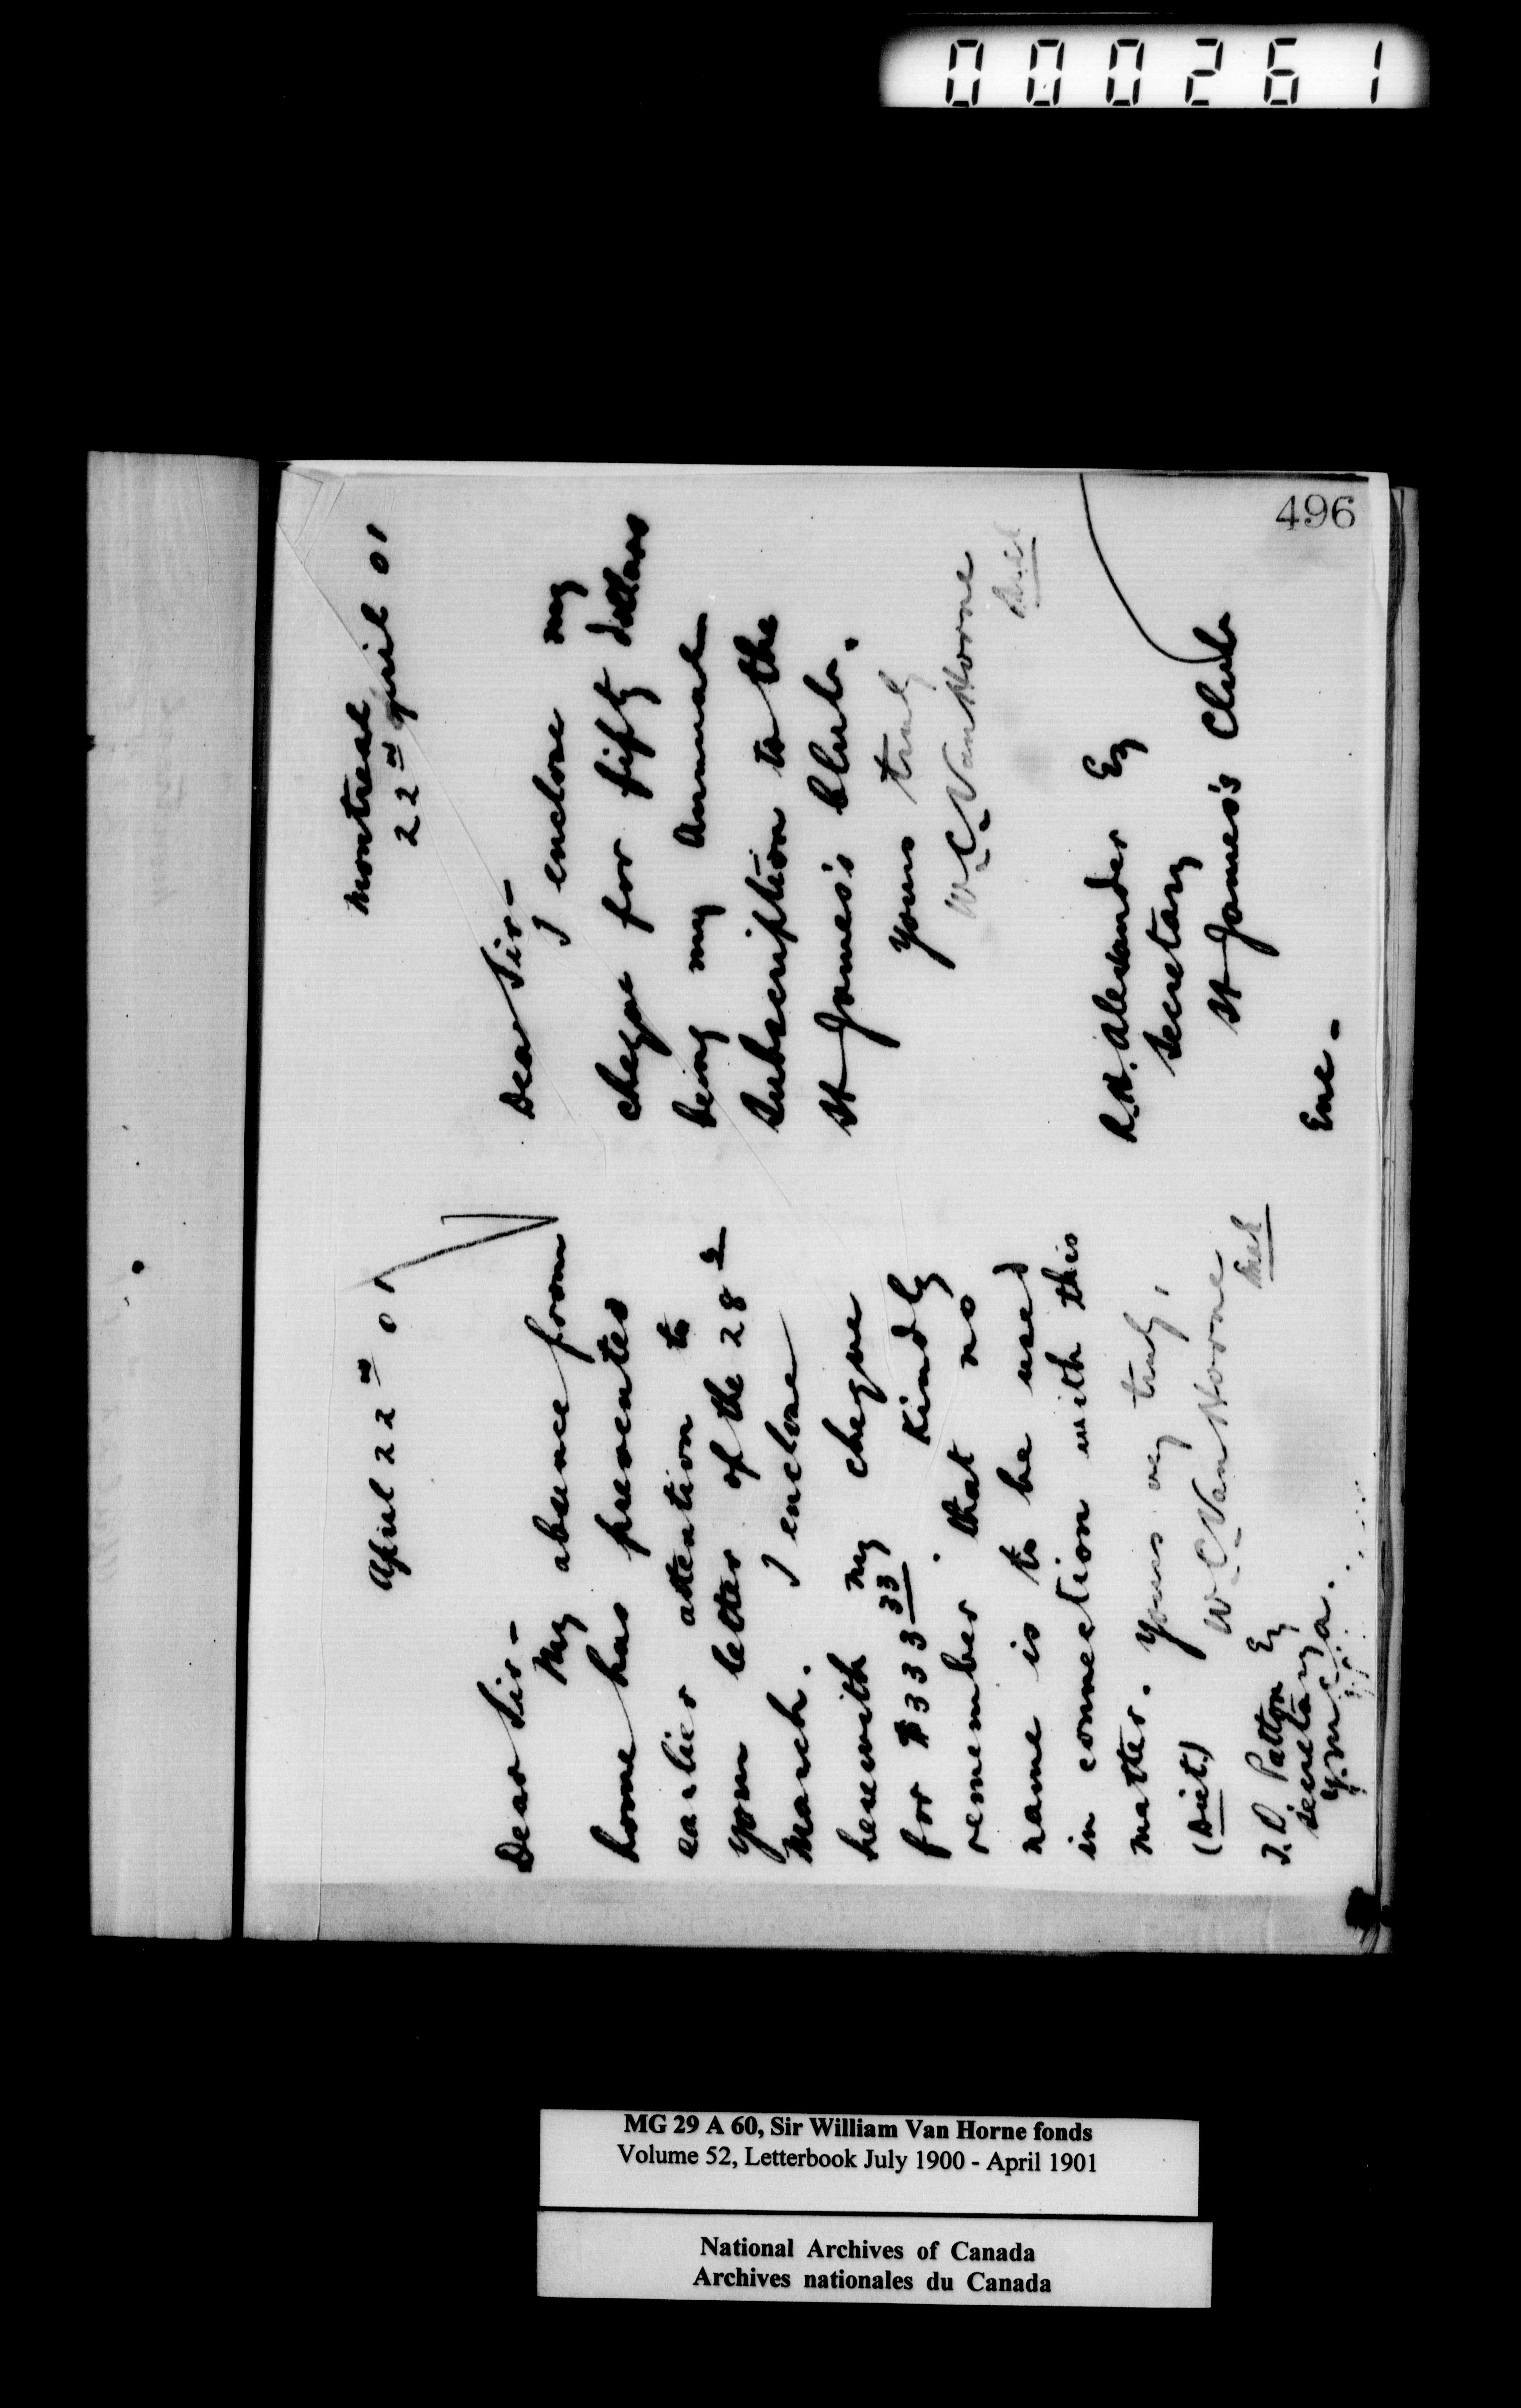 000261
496
April 22nd 01
Dear Sir -
My absence from
home has prevented
earlier attention to
your letter of the 28th
March. I enclose
herewith my cheque
for $333 33. Kindly
remember that no
name is to be used
in connection with this
matter. Yours very truly,
W C Van Horne
(Dict.)
J. D. Patton Esq
Secretary
Y.M.C.A.
Montreal
22nd April 01
Dear Sir -
I enclose my
cheque for fifty dollars
being my annual
subscription to the
St James's Club.
Yours truly
W C Van Horne
R. H. Alexander Esq
Secretary
St James's Club
Enc -
MG 29 A 60, Sir William Van Horne fonds
Volume 52, Letterbook July 1900 - April 1901
National Archives of Canada
Archives nationales du Canada